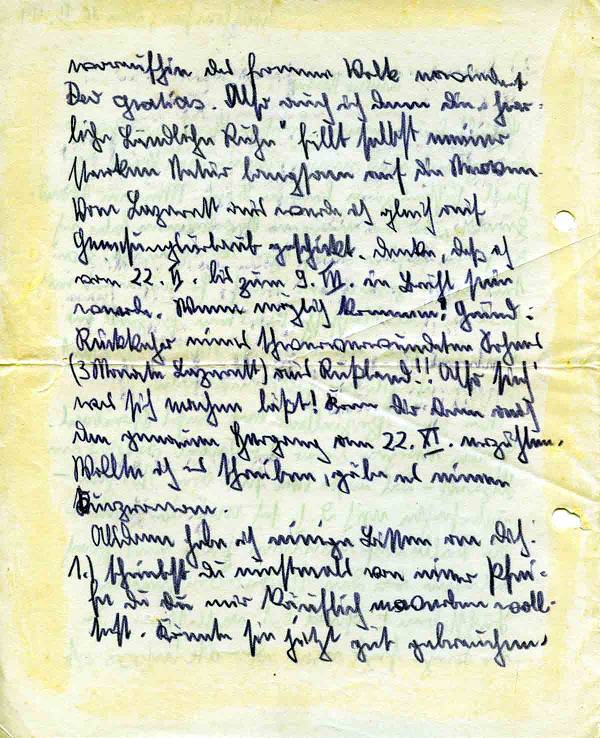 woraufhin das fromme Volk erwidert
Deo gratias. Also auch ich denn die „herr-
liche ländliche Ruhe" fällt selbst meiner
starken Natur langsam auf die Nerven.
Vom Lazarett aus werde ich gleich auf
Genesungsurlaub geschickt. Denke, daß ich
vom 22. II. bis zum 9. III. in sein
werde. Wenn möglich kommen! Grund:
Rückkehr eines schwerverwundeten Sohnes
(3 Monate Lazarett) aus Rußland!! Also sieh'
was sich machen läßt! Kann Dir dann auch
den genauen Hergang vom 22. XI. erzählen.
Wollte ich es schreiben, gäbe es einen
Kurzroman.
Alsdann habe ich einige Bitten an Dich:
1.) schriebst Du einstmals von einer Pfei-
fe die Du mir käuflich erwerben woll-
test. Könnte sie jetzt gut gebrauchen.